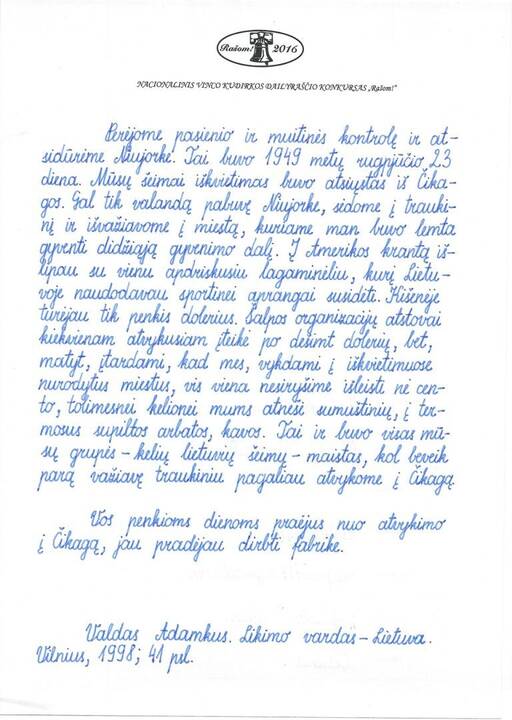 Rašom! 2016
NACIONALINIS VINCO KUDIRKOS DAILYRAŠČIO KONKURSAS „Rašom!“
Perėjome pasienio ir muitinės kontrolę ir at-
sidūrėme Niujorke. Tai buvo 1949 metų rugpjūčio 23
diena. Mūsų šeimai iškvietimas buvo atsiųstas iš Čika-
gos. Gal tik valandą pabuvę Niujorke, sėdome į trauki-
nį ir išvažiavome į miestą, kuriame man buvo lemta
gyventi didžiąją gyvenimo dalį. Į Amerikos krantą iš-
lipau su vienu apdriskusiu lagaminėliu, kurį Lietu-
voje naudodavau sportinei aprangai susidėti. Kišenėje
turėjau tik penkis dolerius. Šalpos organizacijų atstovai
kiekvienam atvykusiam įteikė po dešimt dolerių, bet,
matyt, įtardami, kad mes, vykdami į iškvietimuose
nurodytus miestus, vis viena nesiryšime išleisti nė cen-
to, tolimesnei kelionei mums atnešė sumuštinių, į ter-
mosus supiltos arbatos, kavos. Tai ir buvo visas mū-
sų grupės – kelių lietuvių šeimų – maistas, kol beveik
parą važiavę traukiniu pagaliau atvykome į Čikagą.
Vos penkioms dienoms praėjus nuo atvykimo
į Čikagą, jau pradėjau dirbti fabrike.
Valdas Adamkus. Likimo vardas – Lietuva.
Vilnius, 1998; 41 psl.